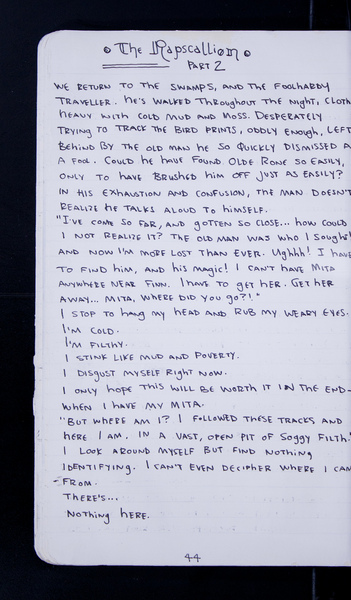 The Rapscallion
PART 2
WE RETURN TO THE SWAMPS, AND THE FOOLHARDY
TRAVELLER. HE'S WALKED THROUGHOUT THE NIGHT, CLOTH
HEAVY WITH COLD MUD AND MOSS. DESPERATELY
TRYING TO TRACK THE BIRD PRINTS, ODDLY ENOUGH, LEFT
BEHIND BY THE OLD MAN HE SO QUICKLY DISMISSED A
A FOOL. COULD HE HAVE FOUND OLDE RONE SO EASILY,
ONLY TO HAVE BRUSHED HIM OFF JUST AS EASILY?
IN HIS EXHAUSTION AND CONFUSION, THE MAN DOESN'T
REALIZE HE TALKS ALOUD TO HIMSELF.
"I'VE COME SO FAR, AND GOTTEN SO CLOSE... HOW COULD
I NOT REALIZE IT? THE OLD MAN WAS WHO I SOUGHT
AND NOW I'M MORE LOST THAN EVER. UGHHH! I HAVE
TO FIND HIM, AND HIS MAGIC! I CAN'T HAVE MITA
ANYWHERE NEAR FINN. I HAVE TO GET HER. GET HER
AWAY... MITA, WHERE DID YOU GO?!"
I STOP TO HANG MY HEAD AND RUB MY WEARY EYES.
I'M COLD.
I'M FILTHY.
I STINK LIKE MUD AND POVERTY.
I DISGUST MYSELF RIGHT NOW.
I ONLY HOPE THIS WILL BE WORTH IT IN THE END-
WHEN I HAVE MY MITA.
"BUT WHERE AM I? I FOLLOWED THESE TRACKS AND
HERE I AM. IN A VAST, OPEN PIT OF SOGGY FILTH."
I LOOK AROUND MYSELF BUT FIND NOTHING
IDENTIFYING. I CAN'T EVEN DECIPHER WHERE I CAM
-FROM.
THERE'S...
NOTHING HERE.
44